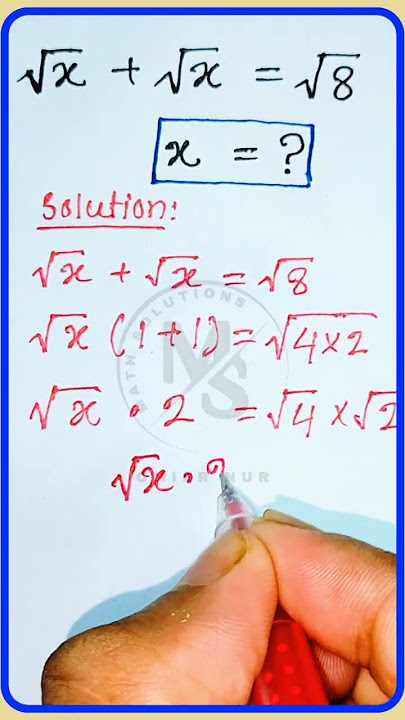 √x + √x = √8
x = ?
Solution:
√x + √x = √8
√x (1 + 1) = √4×2
√x · 2 = √4 × √2
√x ·
MATH SOLUTIONS
MS